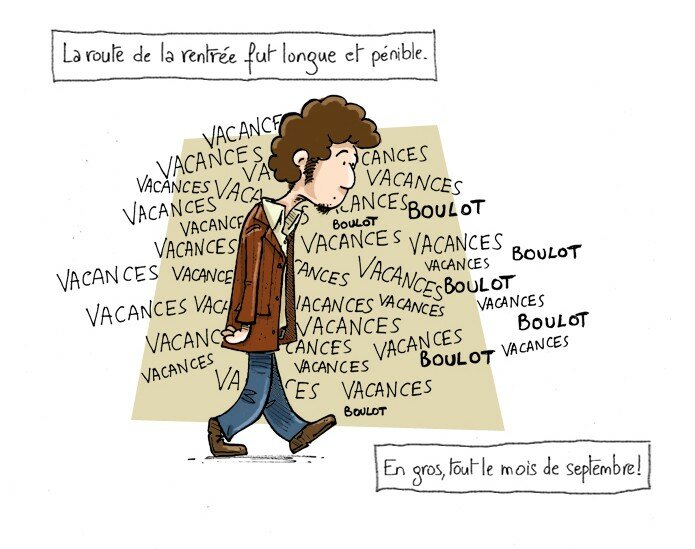 La route de la rentrée fut longue et pénible.
VACANCES
VACANCES VA CANCES
VACANCES VACA VACANCES
VACANCES S VACANCES BOULOT
VACANCES BOULOT
VACANCES VACANCES VACANCES BOULOT
VACANCES VACANCES CANCES VACANCES VACANCES
BOULOT
VACANCES VACA VACANCES VACANCES VACANCES
VACANCES BOULOT
VACANCES CANCES VACANCES VACANCES
VACANCES VACANCES BOULOT
VA CES VACANCES
BOULOT
En gros, tout le mois de septembre!